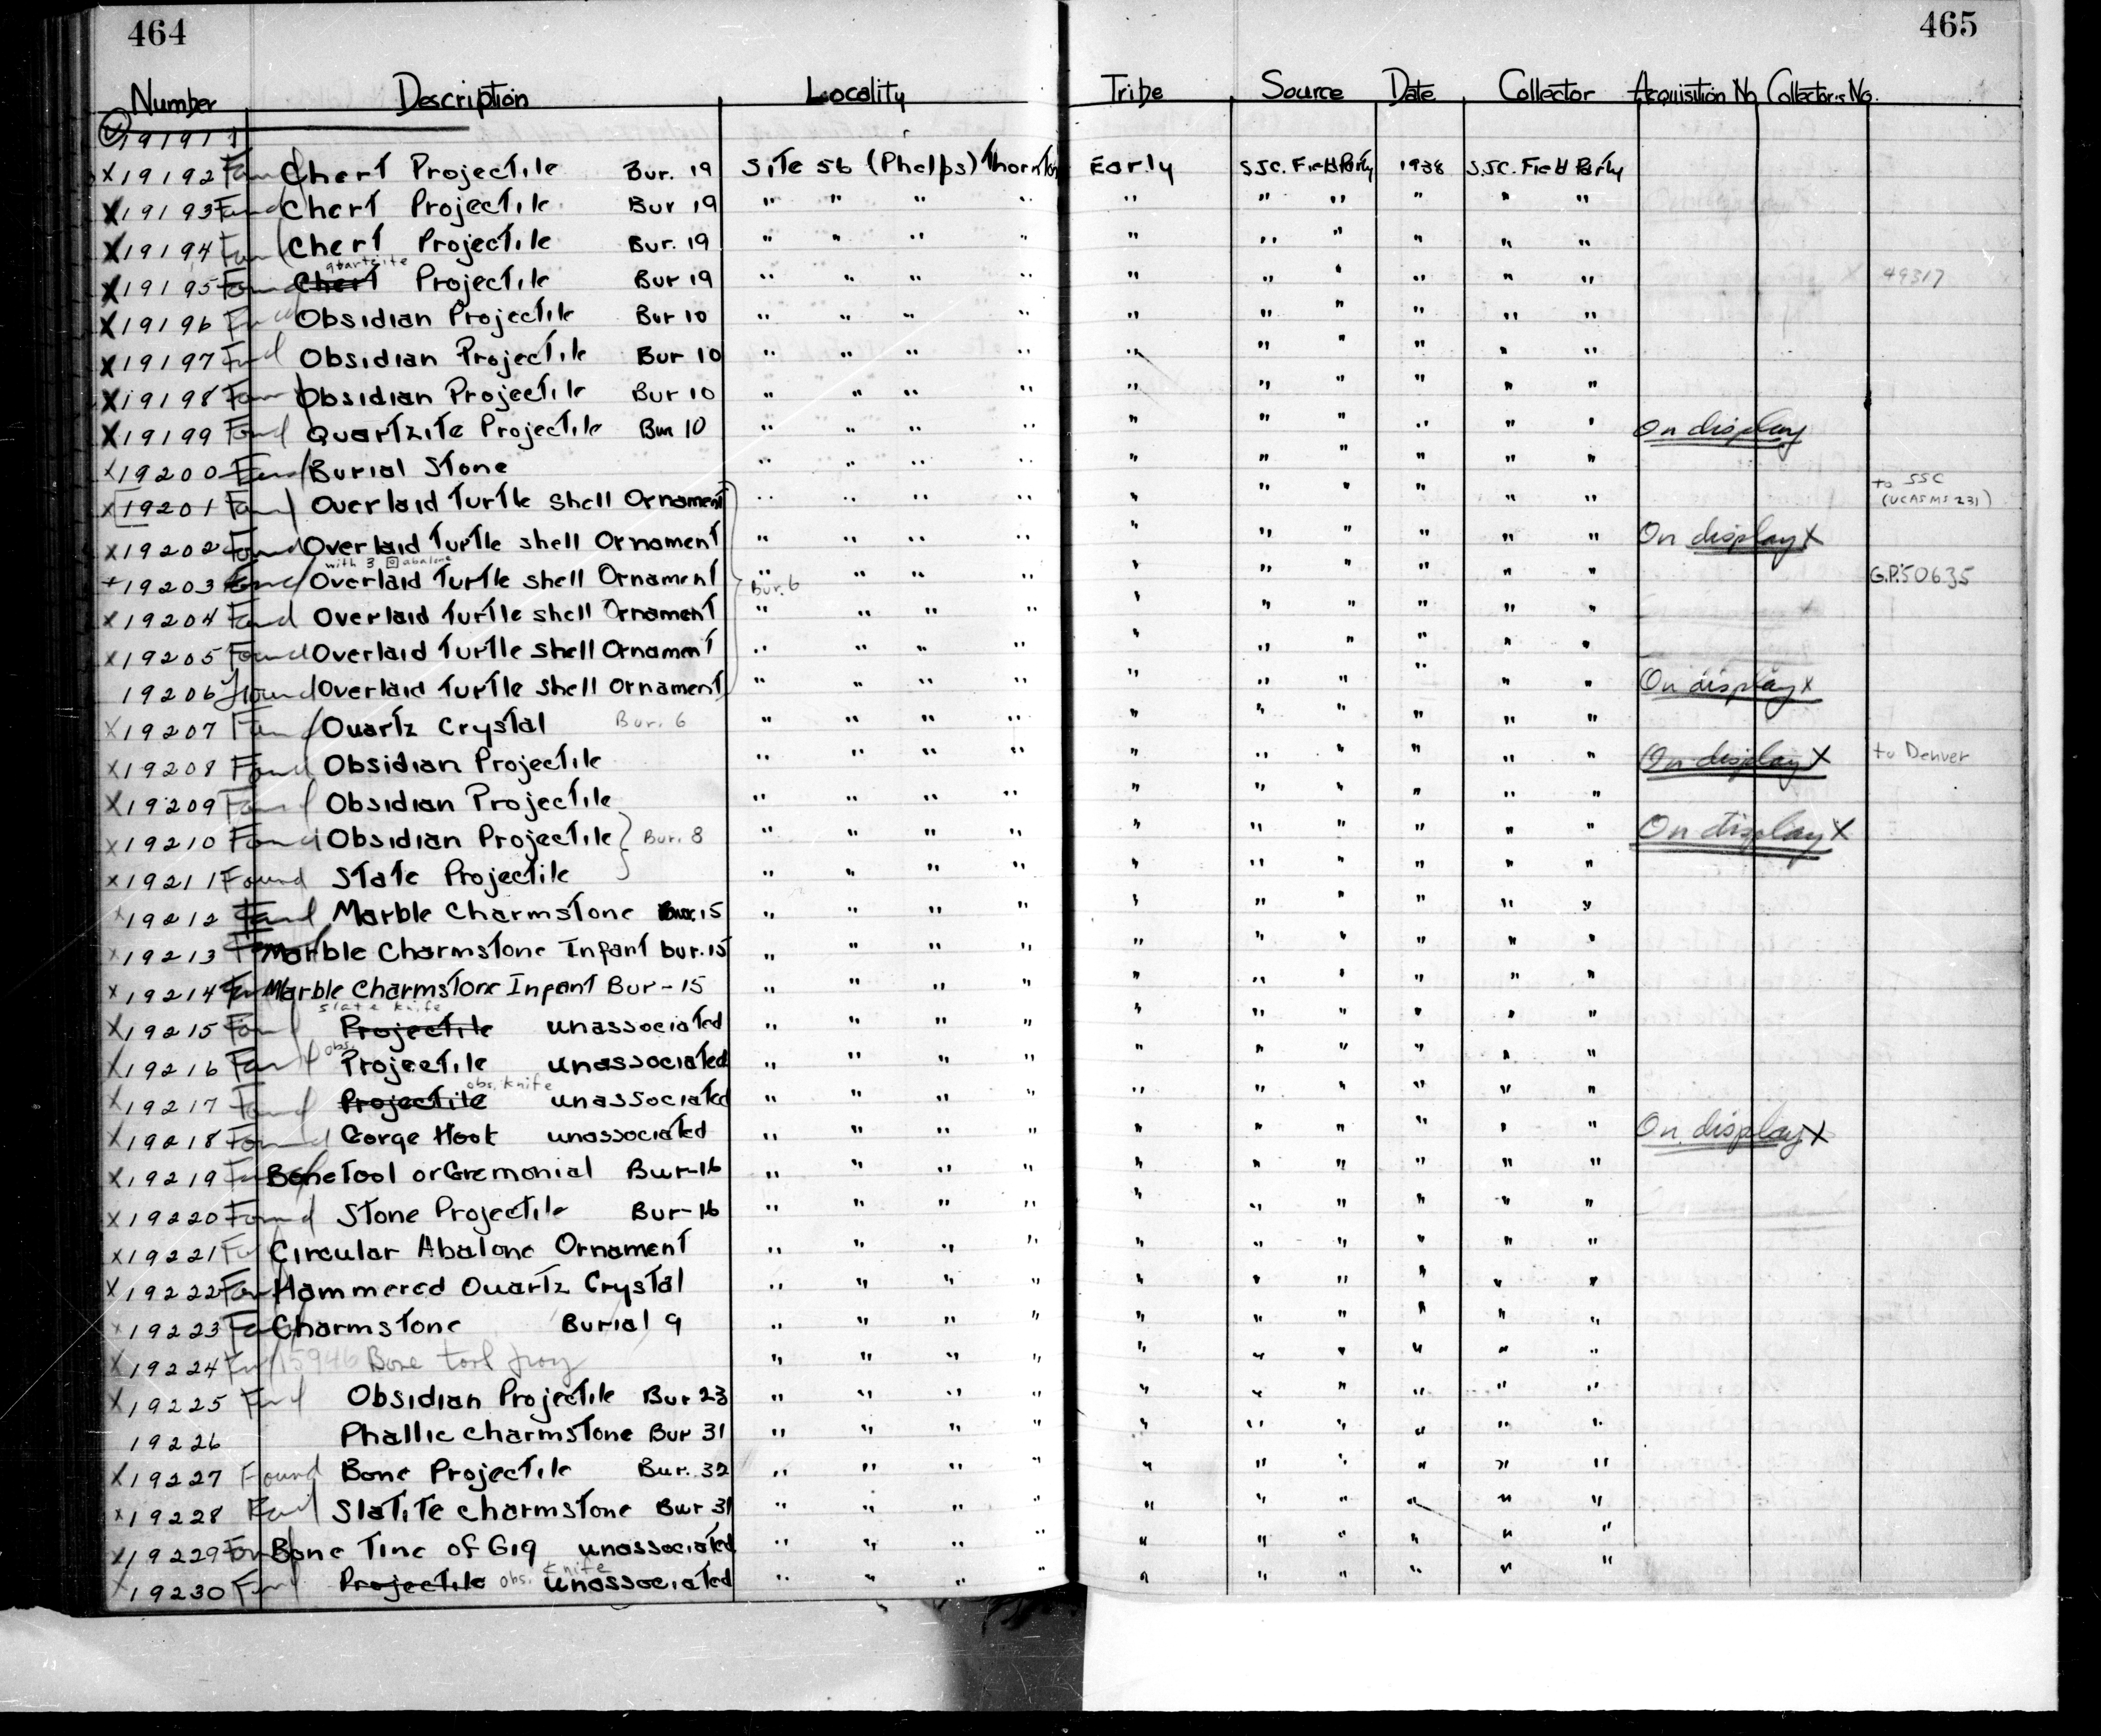 464 465
Number Description Locality Tribe Source Date Collector Acquisition No. Collector's No.
19191
X 19192 Found Chert Projectile Bur. 19 Site 56 (Phelps) Thornton Early SJC. Field Party 1938 S.J.C. Field Party
X 19193 Found Chert Projectile Bur 19 " " " " " " " " " "
X 19194 Found Chert Projectile Bur. 19 " " " " " " " " " "
quartzite
X 19195 Found Chert Projectile Bur 19 " " " " " " " " " " 49317
X 19196 Found Obsidian Projectile Bur 10 " " " " " " " " " "
X 19197 Found Obsidian Projectile Bur 10 " " " " " " " " " "
X 19198 Found Obsidian Projectile Bur 10 " " " " " " " " " "
X 19199 Found Quartzite Projectile Bur 10 " " " " " " " " " " On display
X 19200 Found Burial Stone " " " " " " " " " "
X 19201 Found Overlaid Turtle Shell Ornament " " " " " " " " " " to SSC
(UCASMS 231)
X 19202 Found Overlaid Turtle shell Ornament " " " " " " " " " " On display X
with 3 abalone
+ 19203 Found Overlaid Turtle shell Ornament Bur. 6 " " " " " " " " " " G.P. 50635
X 19204 Found Overlaid Turtle shell Ornament " " " " " " " " " "
X 19205 Found Overlaid Turtle Shell Ornament " " " " " " " " " "
19206 found Overlaid Turtle Shell Ornament " " " " " " " " " " On display X
X 19207 Found Quartz Crystal Bur. 6 " " " " " " " " " "
X 19208 Found Obsidian Projectile " " " " " " " " " " On display X to Denver
X 19209 Found Obsidian Projectile " " " " " " " " " "
X 19210 Found Obsidian Projectile Bur. 8 " " " " " " " " " " On display X
X 19211 Found State Projectile " " " " " " " " " "
X 19212 Found Marble Charmstone Bur. 15 " " " " " " " " " "
X 19213 Marble Charmstone Infant bur. 15 " " " " " " " " " "
X 19214 Found Marble Charmstone Infant Bur-15 " " " " " " " " " "
slate knife
X 19215 Found Projectile unassociated " " " " " " " " " "
X 19216 Found obs. Projectile unassociated " " " " " " " " " "
obs. knife
X 19217 Found Projectile unassociated " " " " " " " " " "
X 19218 Found Gorge Hook unassociated " " " " " " " " " " On display X
X 19219 Found Bone Tool or Cremonial Bur-16 " " " " " " " " " "
X 19220 Found Stone Projectile Bur-16 " " " " " " " " " "
X 19221 Circular Abalone Ornament " " " " " " " " " "
X 19222 Found Hammered Quartz Crystal " " " " " " " " " "
X 19223 Found Charmstone Burial 9 " " " " " " " " " "
X 19224 Found 15946 Bone tool " " " " " " " " " "
X 19225 Found Obsidian Projectile Bur 23 " " " " " " " " " "
19226 Phallic Charmstone Bur 31 " " " " " " " " " "
X 19227 Found Bone Projectile Bur. 32 " " " " " " " " " "
X 19228 Found Slatite charmstone Bur 31 " " " " " " " " " "
X 19229 Found Bone Tine of Gig unassociated " " " " " " " " " "
X 19230 Found Projectile obs. knife unassociated " " " " " " " " " "